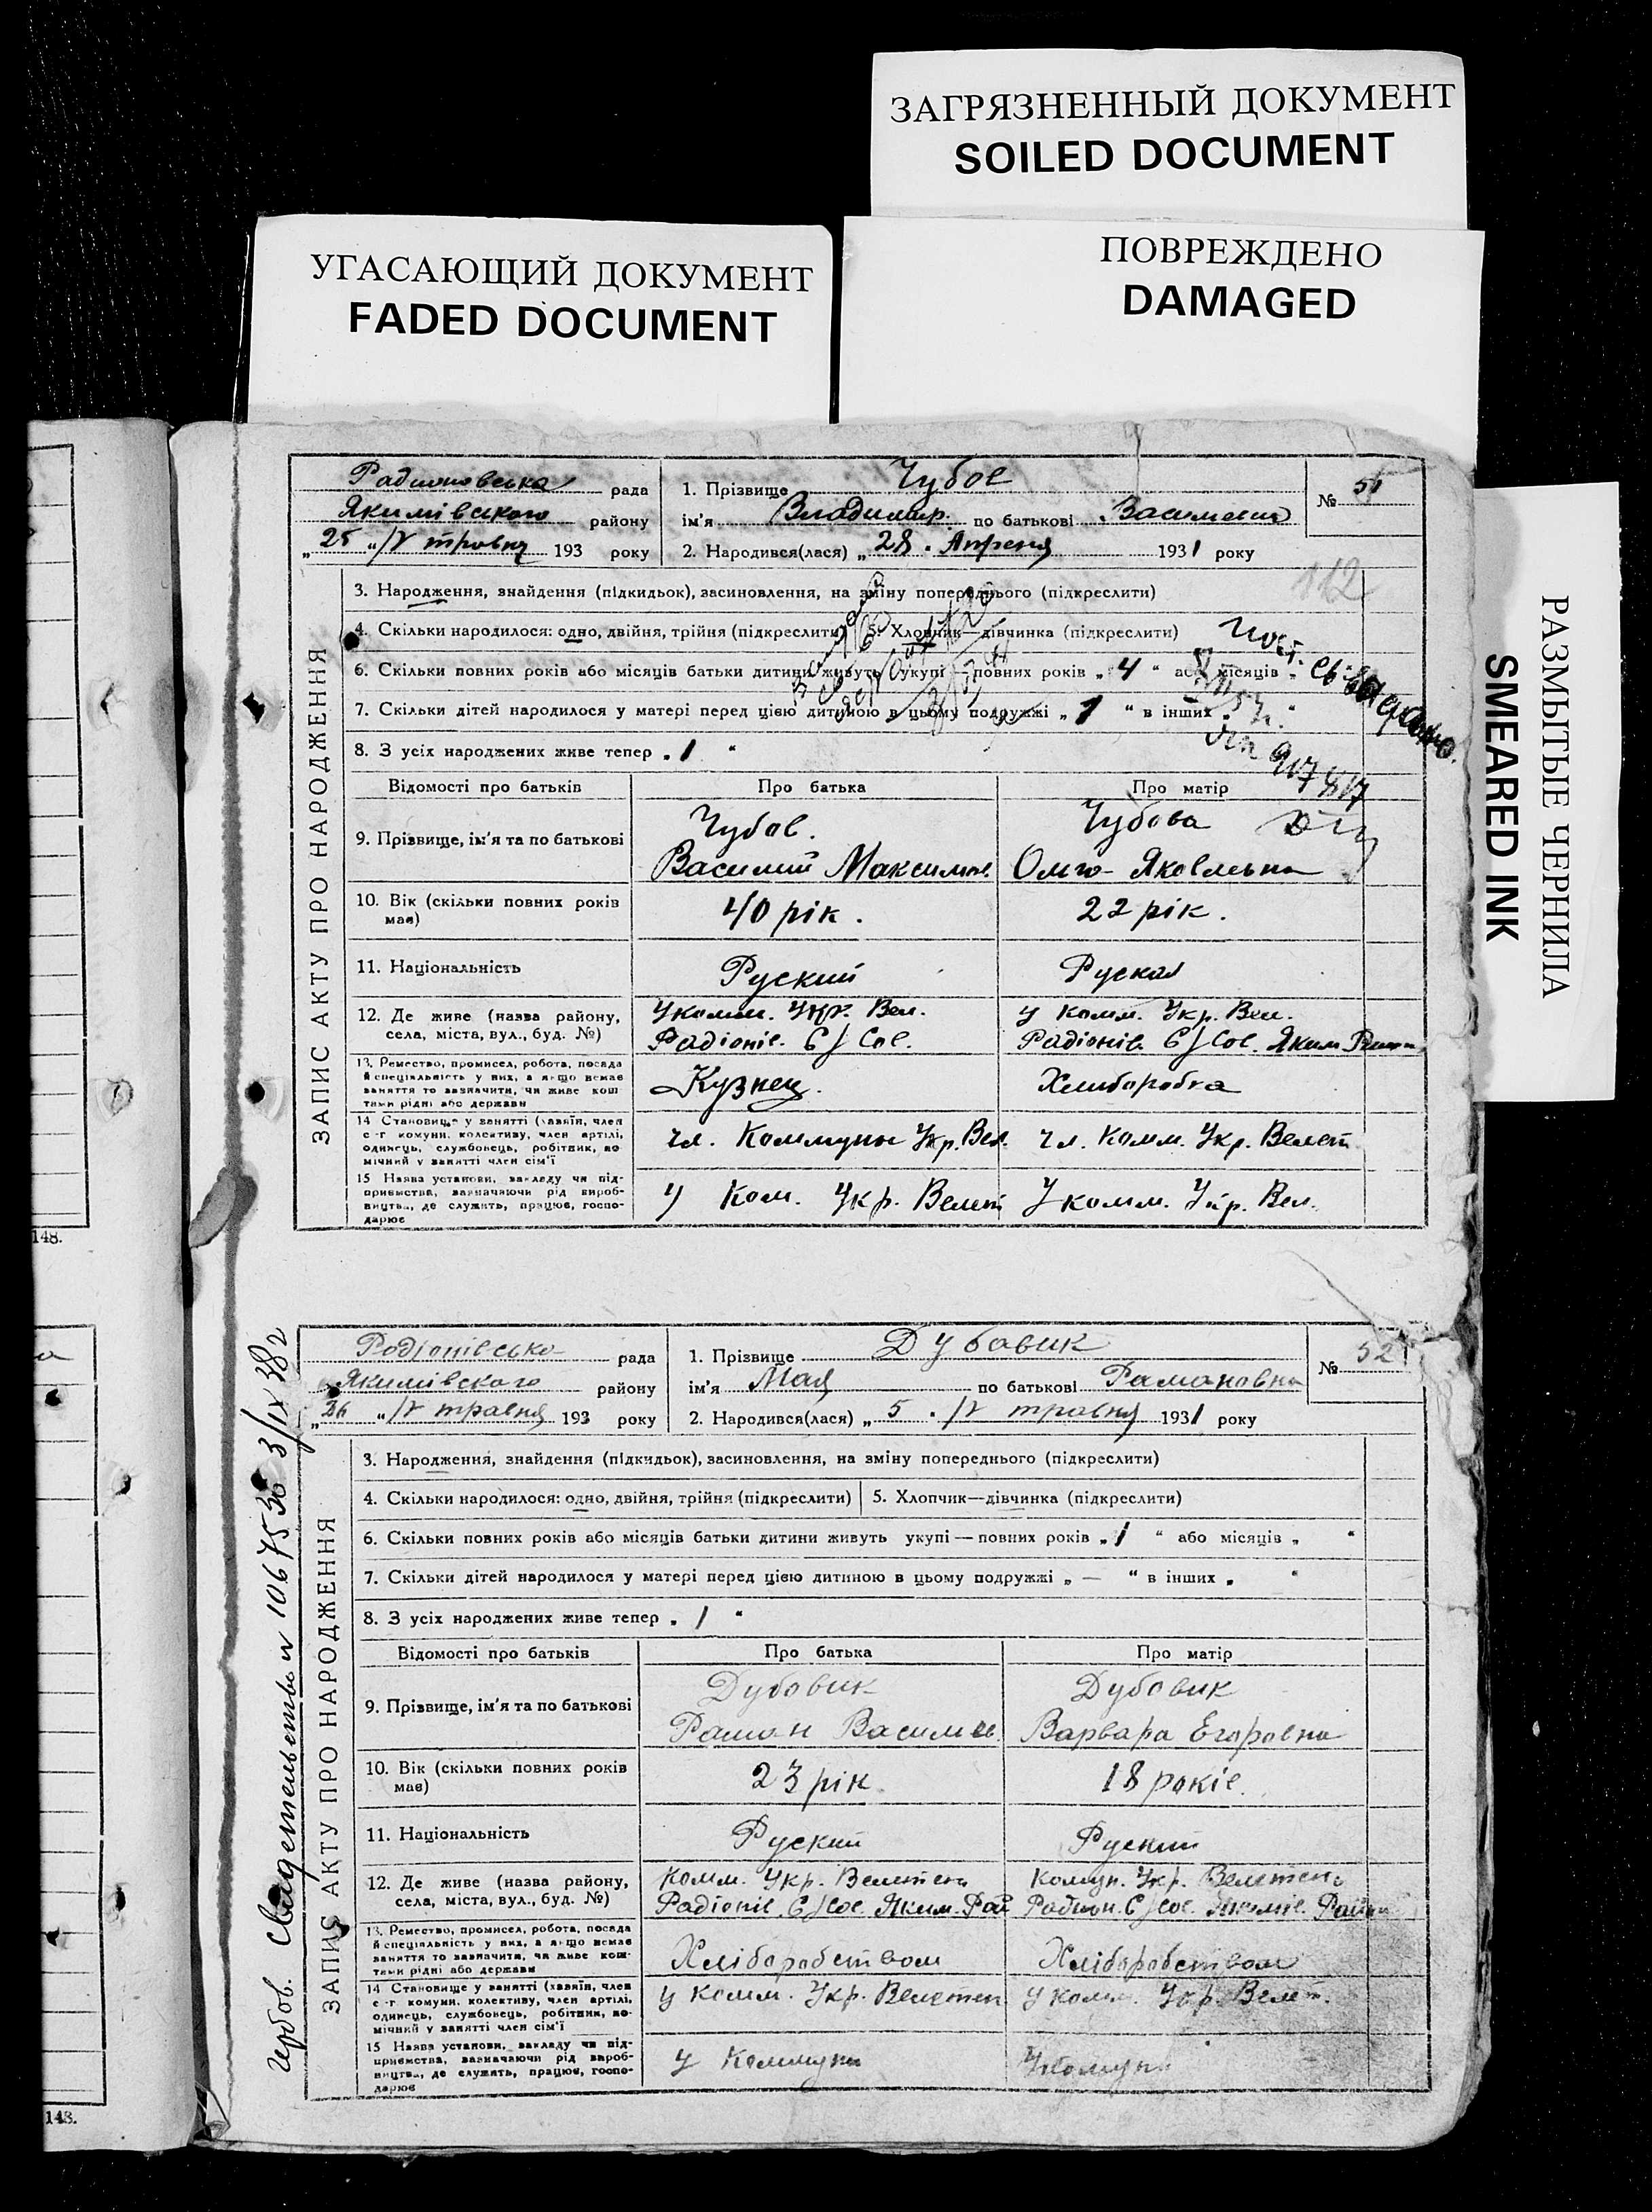 ЗАГРЯЗНЕННЫЙ ДОКУМЕНТ
SOILED DOCUMENT
УГАСАЮЩИЙ ДОКУМЕНТ
FADED DOCUMENT
ПОВРЕЖДЕНО
DAMAGED
РАЗМЫТЫЕ ЧЕРНИЛА
SMEARED INK
148.
148.
ЗАПИС АКТУ ПРО НАРОДЖЕННЯ
рада
Якимівського району
„ 25 “ /V 193 року
1. Прізвище Чубов
ім'я Владимир. по батькові
2. Народився(лася) „ 28 . Апреля 1931 року
№ 51
112
3. Народження, знайдення (підкидьок), засиновлення, на зміну попереднього (підкреслити)
4. Скільки народилося: одно, двійня, трійня (підкреслити) 5. Хлопчик—дівчинка (підкреслити)
6. Скільки повних років або місяців батьки дитини живуть укупі — повних років „ 4 “ або місяців „
7. Скільки дітей народилося у матері перед цією дитиною в цьому подружжі „ 1 “ в інших „
8. З усіх народжених живе тепер „ 1 “
Відомості про батьків Про батька Про матір
9. Прізвище, ім'я та по батькові
Чубов. Чубова
Василий Максимов. Яковлевна
10. Вік (скільки повних років має) 40 рік. 22 рік.
11. Національність Руский Руская
12. Де живе (назва району, села, міста, вул., буд. №)
У комм. Укр. Вел. у комм. Укр. Вел.
Радіонів. С/Сов. Радіонів. С/Сов. Яким
13. Ремество, промисел, робота, посада й спеціяльність у них, а якщо немає заняття то зазначити, чи живе коштами рідні або держави
Кузнец. Хлиборобка
14 Становище у занятті (хазяїн, член с-г комуни, колективу, член артілі, одинець, службовець, робітник, помічний у занятті член сім'ї
чл. Коммуны Укр. Вел. чл. Комм. Укр. Велет
15 Назва установи, закладу чи підприємства, зазначаючи рід виробництва, де служить, працює, господарює
У Ком. Укр. Велет У комм. Укр. Вел.
ЗАПИС АКТУ ПРО НАРОДЖЕННЯ
Гербов. Свидетельство № 1067536 3/IX
Родіонівсько рада
Якимівского району
„ 26 “ /V травня 193 року
1. Прізвище Дубавик
ім'я Мая по батькові Рамановна
2. Народився(лася) „ 5 . /V травня 1931 року
№ 52
3. Народження, знайдення (підкидьок), засиновлення, на зміну попереднього (підкреслити)
4. Скільки народилося: одно, двійня, трійня (підкреслити) 5. Хлопчик—дівчинка (підкреслити)
6. Скільки повних років або місяців батьки дитини живуть укупі — повних років „ 1 “ або місяців „ “
7. Скільки дітей народилося у матері перед цією дитиною в цьому подружжі „ — “ в інших „ “
8. З усіх народжених живе тепер „ 1 “
Відомості про батьків Про батька Про матір
9. Прізвище, ім'я та по батькові
Дубовик Дубовик
Раман Васильев. Варвара Егоровна
10. Вік (скільки повних років має) 23 рік 18 років.
11. Національність Руский Руский
12. Де живе (назва району, села, міста, вул., буд. №)
комм. Укр. Велетень Комун. Укр. Велетень
Радіонів. С/Сов. Яким. Рай С/Сов.
13. Ремество, промисел, робота, посада й спеціяльність у них, а якщо немає заняття то зазначити, чи живе коштами рідні або держави
Хліборобством Хліборобством
14 Становище у занятті (хазяїн, член с-г комуни, колективу, член артілі, одинець, службовець, робітник, помічний у занятті член сім'ї
у Комм. Укр. Велетен у Комм. Укр. Велет.
15 Назва установи, закладу чи підприємства, зазначаючи рід виробництва, де служить, працює, господарює
у Коммуни